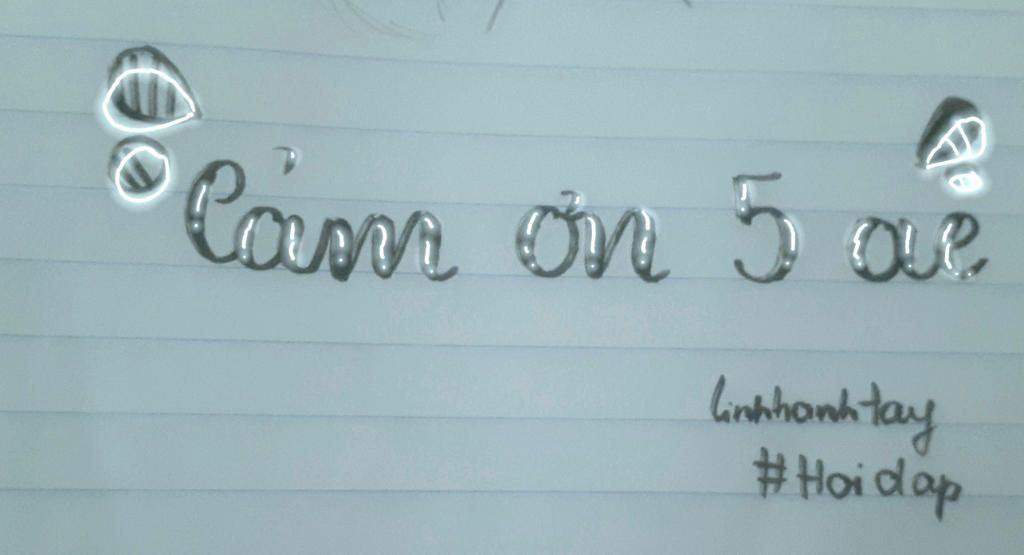 Cảm ơn 5 ae
linhhanhtay
#Hoidap